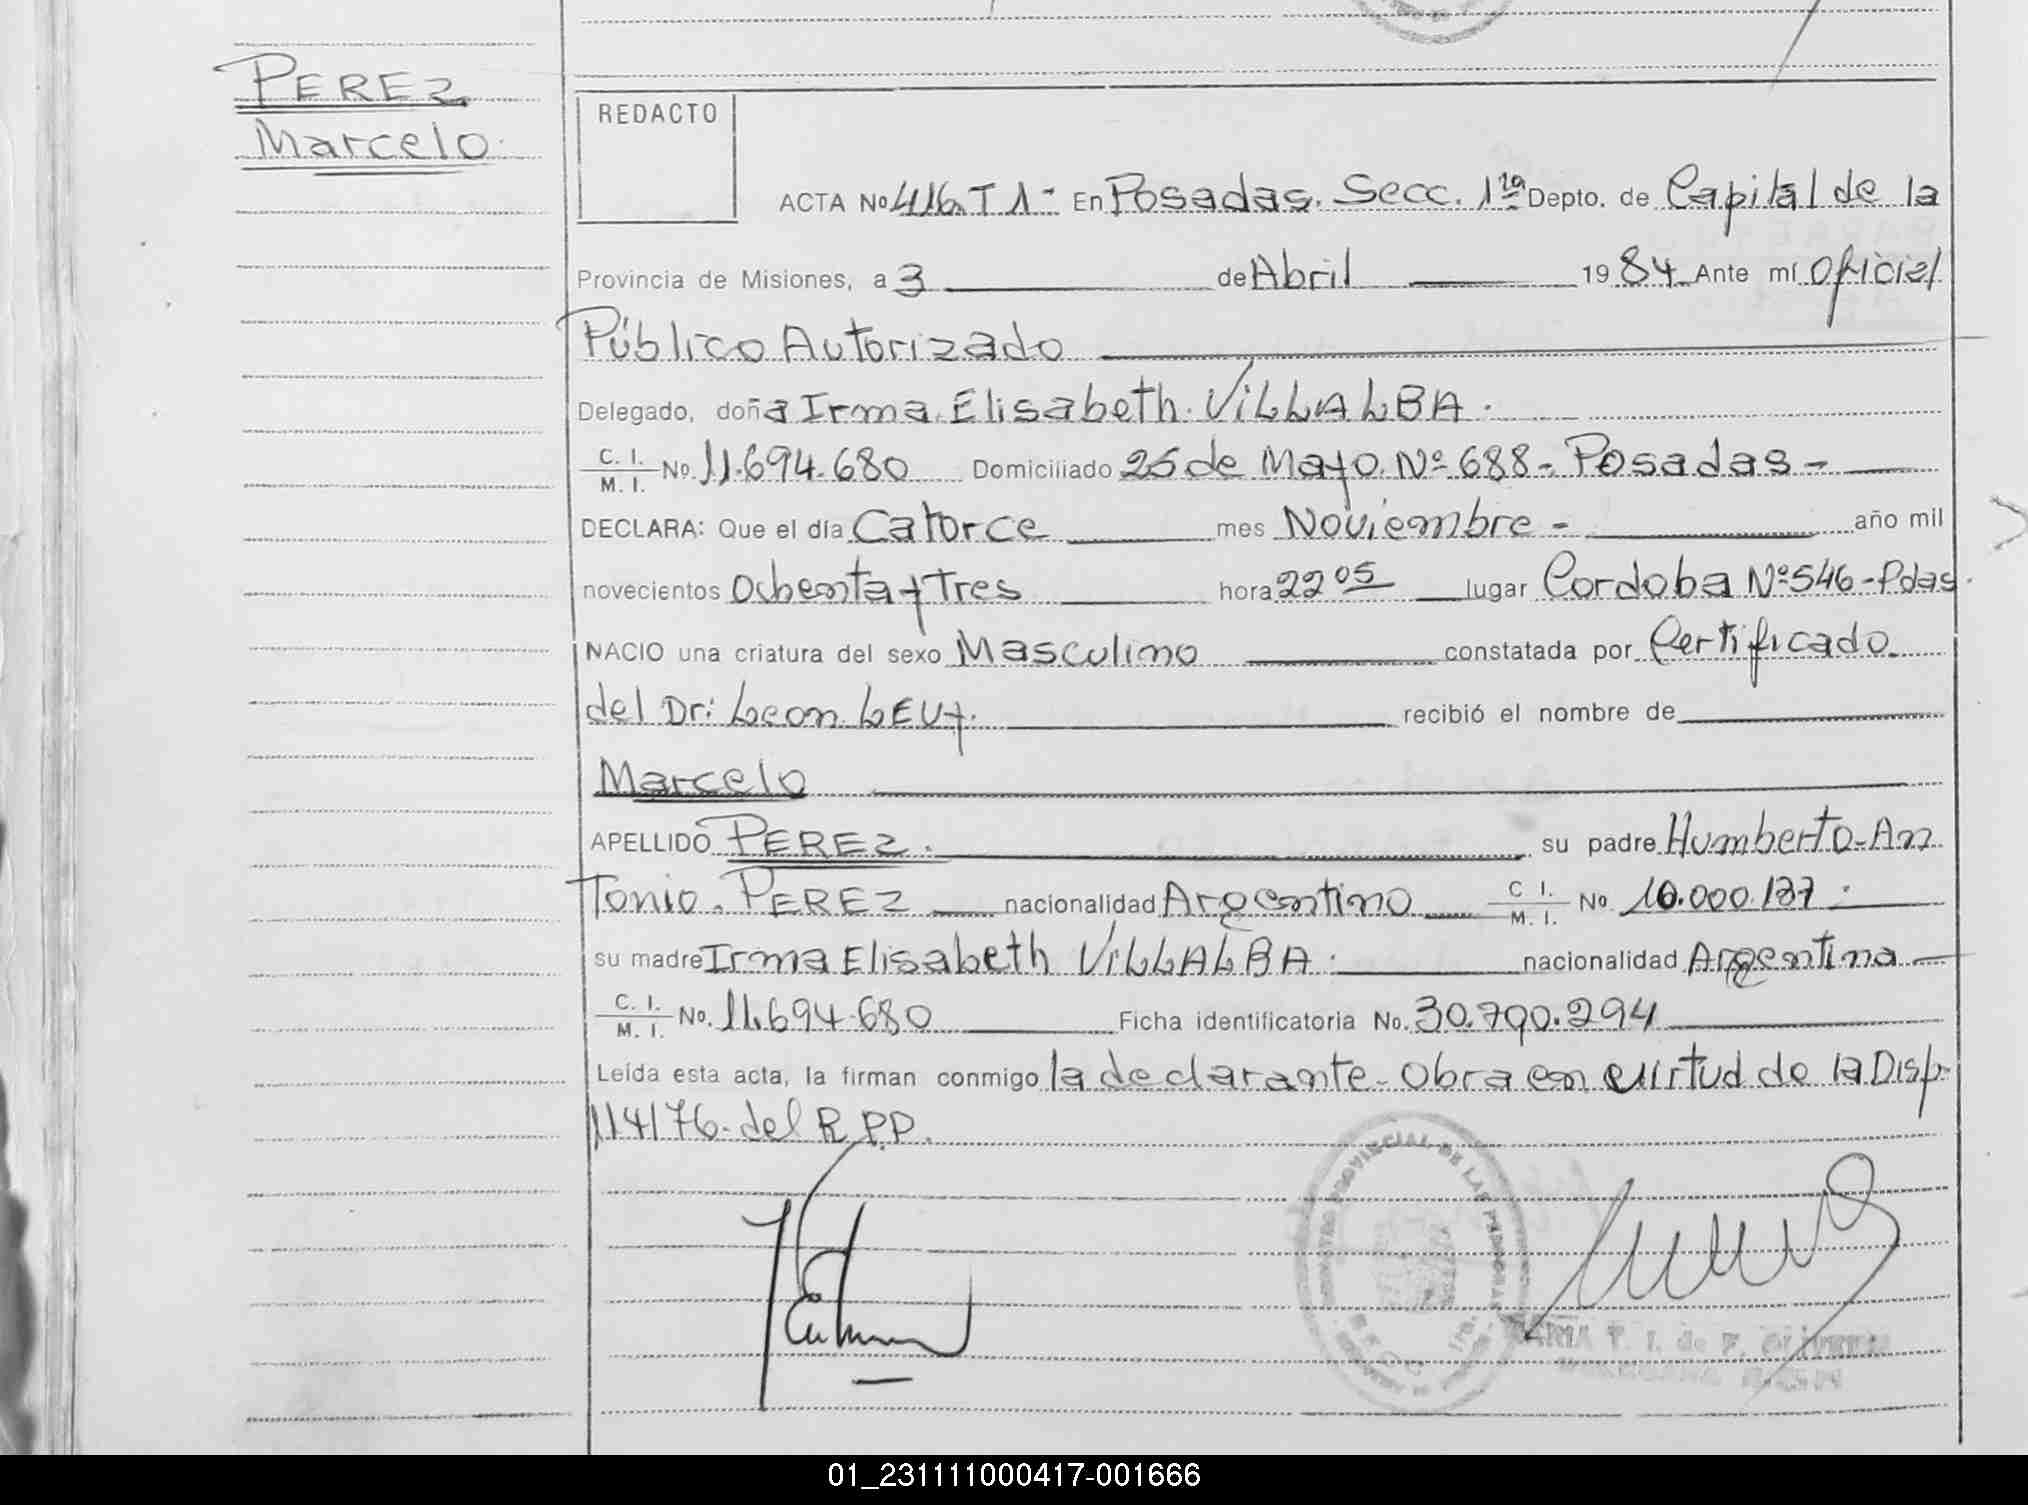 PEREZ
Marcelo.
REDACTO
ACTA No 416. T 1- En Posadas. Secc. 1ra Depto. de Capital de la
Provincia de Misiones, a 3 de Abril 1984 Ante mí Oficial
Público Autorizado
Delegado, doña Irma Elisabeth VILLALBA.
C. I. M. I. No. 11.694.680 Domiciliado 25 de Mayo. Nº 688- Posadas-
DECLARA: Que el día Catorce mes Noviembre - año mil
novecientos Ochenta y Tres hora 22 05 lugar Cordoba Nº 546-Pdas.
NACIO una criatura del sexo Masculino constatada por Certificado
del Dr: Leon LEVY. recibió el nombre de
Marcelo
APELLIDO PEREZ. su padre Humberto-An
Tonio. PEREZ nacionalidad Argentino C I. M. I. No. 10.000.137.
su madre Irma Elisabeth VILLALBA. nacionalidad Argentina
C. I. M. I. No. 11.694.680 Ficha identificatoria No. 30.790.294
Leída esta acta, la firman conmigo la declarante- Obra en virtud de la Disp.
114/76. del R.P.P.
PROVINCIAL DE LAS PERSONAS
01_231111000417-001666